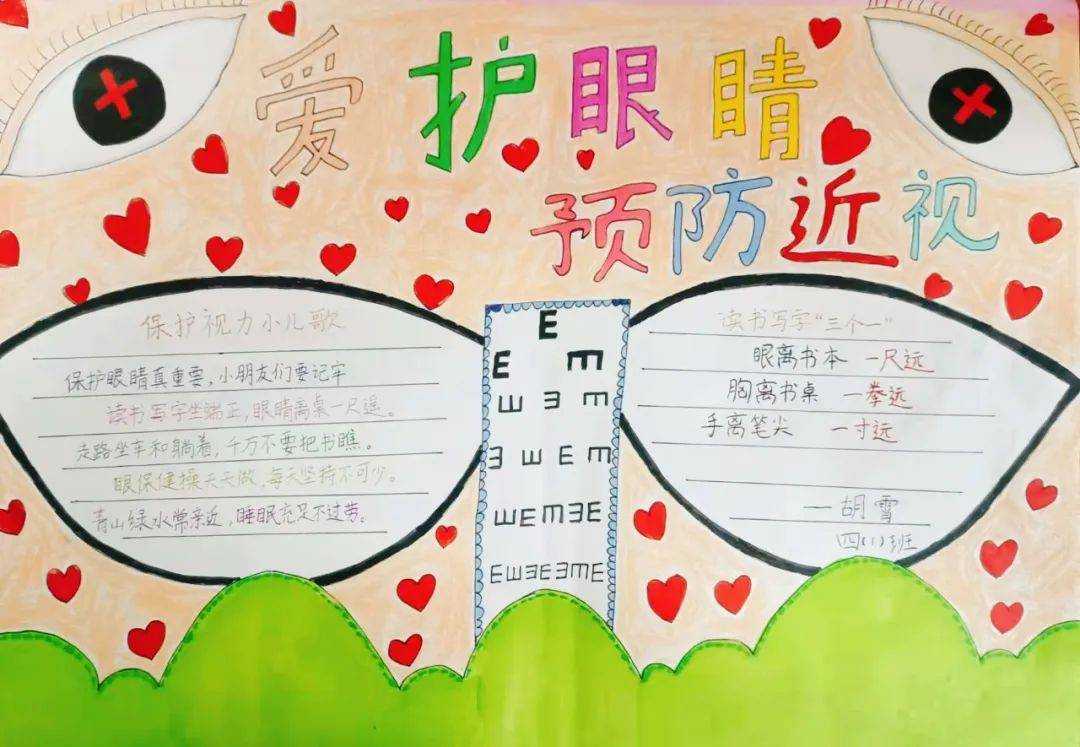 爱护眼睛
预防近视
保护视力小儿歌
保护眼睛真重要,小朋友们要记牢
读书写字坐端正,眼睛离桌一尺遥。
走路坐车和躺着,千万不要把书瞧。
眼保健操天天做,每天坚持不可少。
青山绿水常亲近,睡眠充足不过劳。
E
E E
E E E
E E E E
E E E E E
E E E E E E E
读书写字“三个一”
眼离书本 一尺远
胸离书桌 一拳远
手离笔尖 一寸远
—胡雪
四(1)班